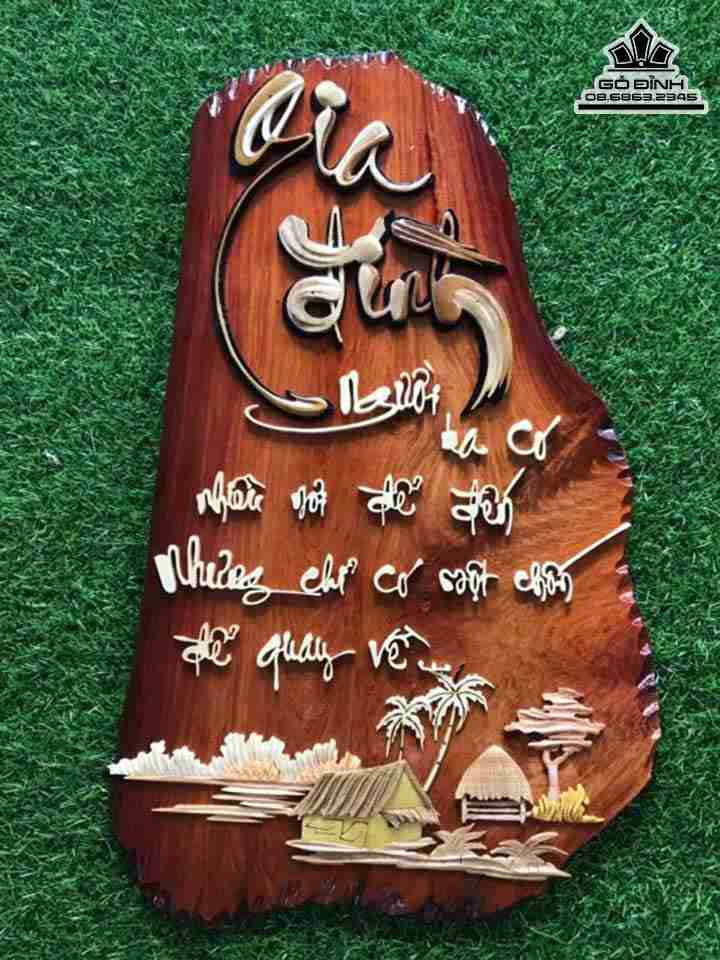 GỖ ĐỈNH
08.6863.2345
Gia
đình
Người
ta có
nhiều nơi để đến
Nhưng chỉ có một chốn
để quay về...